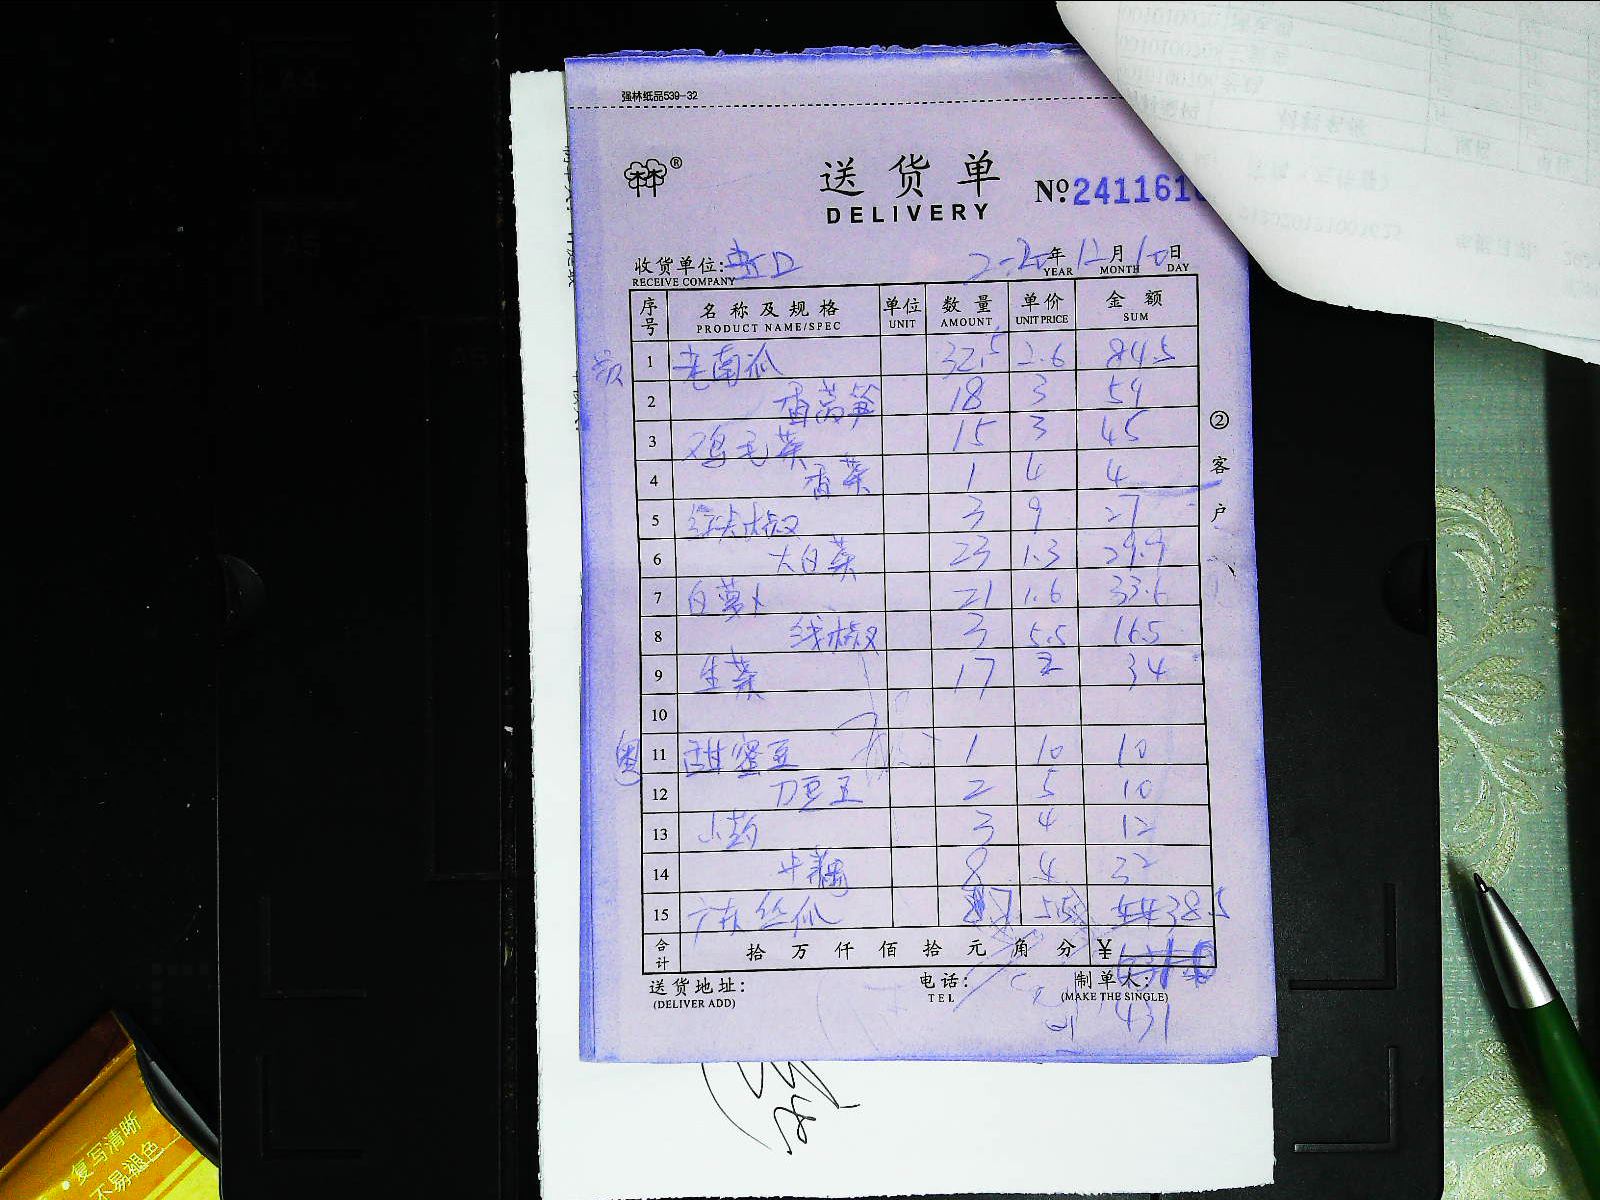 强林纸品539-32
林®
送货单
DELIVERY
№2411616
收货单位:
RECEIVE COMPANY
年 12月10日
YEAR MONTH DAY
序号 名称及规格 单位 数量 单价 金额
PRODUCT NAME/SPEC UNIT AMOUNT UNIT PRICE SUM
1 老南瓜 32.5 2.6 84.5
2 香莴笋 18 3 54
3 鸡毛菜 15 3 45
4 香菜 1 4 4
5 红尖椒 3 9 27
6 大白菜 23 1.3 29.9
7 白萝卜 21 1.6 33.6
8 线椒 3 5.5 16.5
9 生菜 17 2 34
10
11 甜蜜豆 1 10 10
12 刀豆 2 5 10
13 3 4 12
14 牛藕 8 4 32
15 广东丝瓜 5.5 38.5
合计 拾万仟佰拾元角分 ¥
送货地址: 电话: 制单人:
(DELIVER ADD) TEL (MAKE THE SINGLE)
431
②客户
·复写清晰
不易褪色